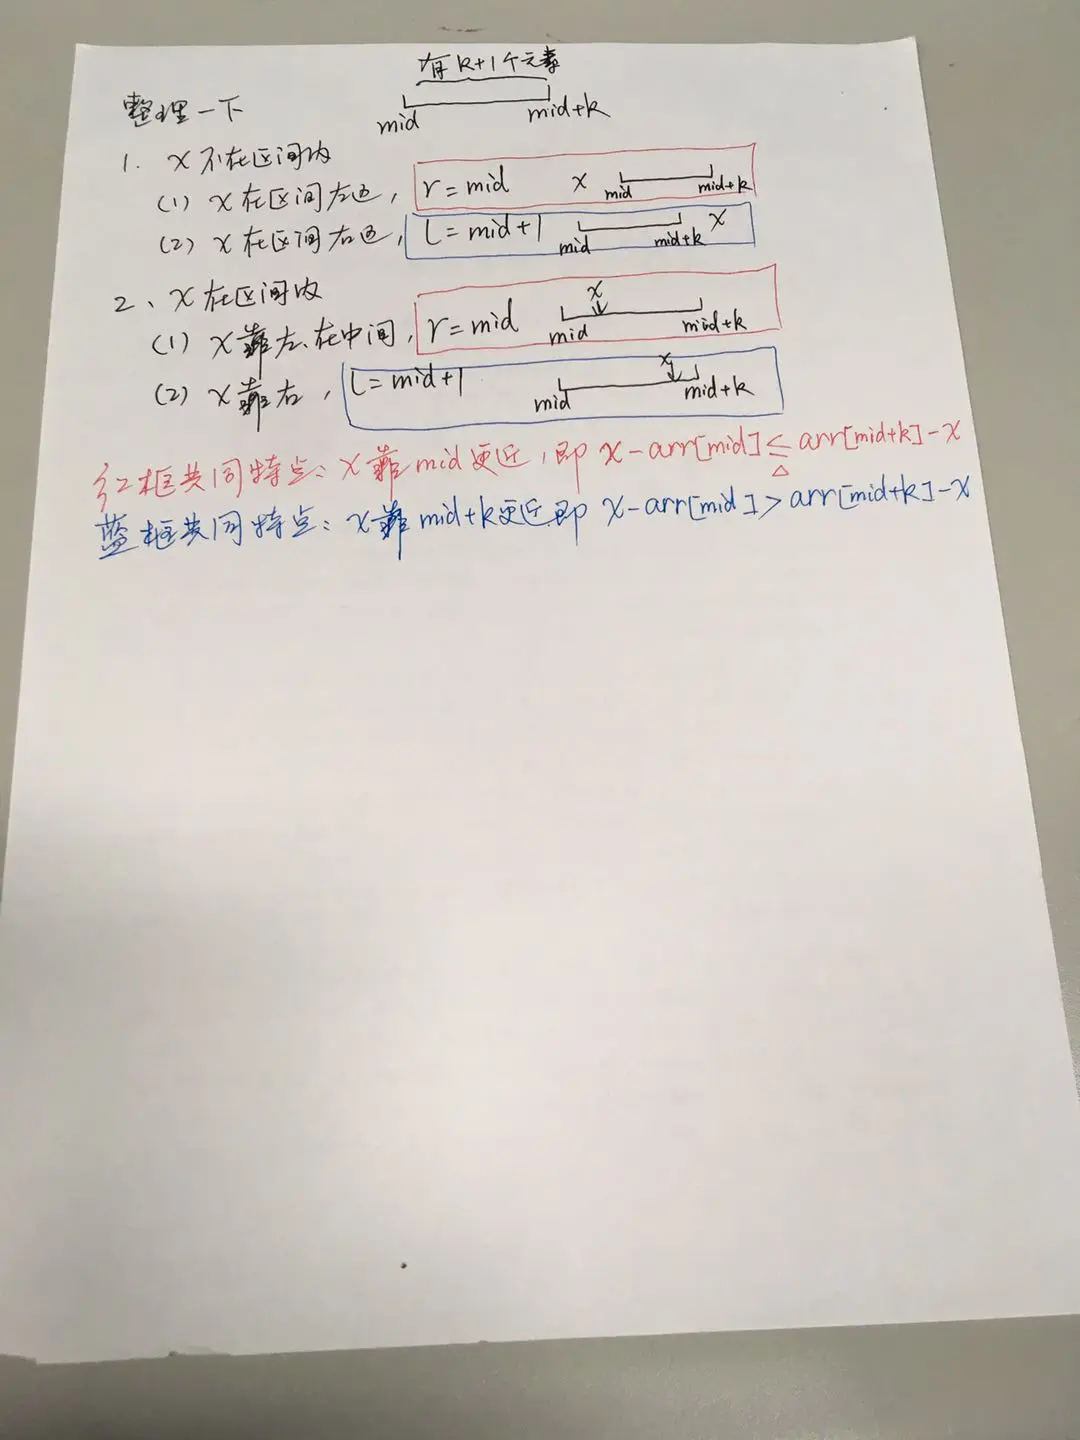 有k+1个元素
整理一下
mid mid+k
1. x不在区间内
(1) x在区间左边, r=mid x mid mid+k
(2) x在区间右边, l=mid+1 mid mid+k x
2、x在区间内
(1) x靠左、在中间, r=mid mid x mid+k
(2) x靠右, l=mid+1 mid x mid+k
红框共同特点: x靠mid更近, 即 x-arr[mid]≤arr[mid+k]-x
△
蓝框共同特点: x靠mid+k更近,即 x-arr[mid]>arr[mid+k]-x